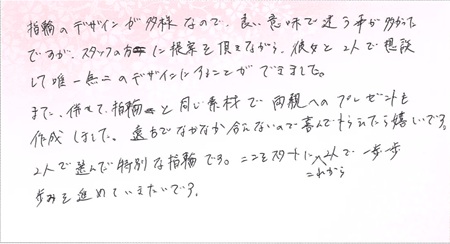 指輪のデザインが多様なので、良い意味で迷う事が多かった
ですが、スタッフの方に提案を頂きながら、彼女と2人で相談
して唯一無二のデザインにすることができました。
また、併せて、指輪と同じ素材で両親へのプレゼントも
作成しました。遠方でなかなか会えないので喜んでもらえたら嬉しいです。
2人で選んで特別な指輪です。ここをスタートに、2人で一歩一歩
これから
歩みを進めていきたいです。